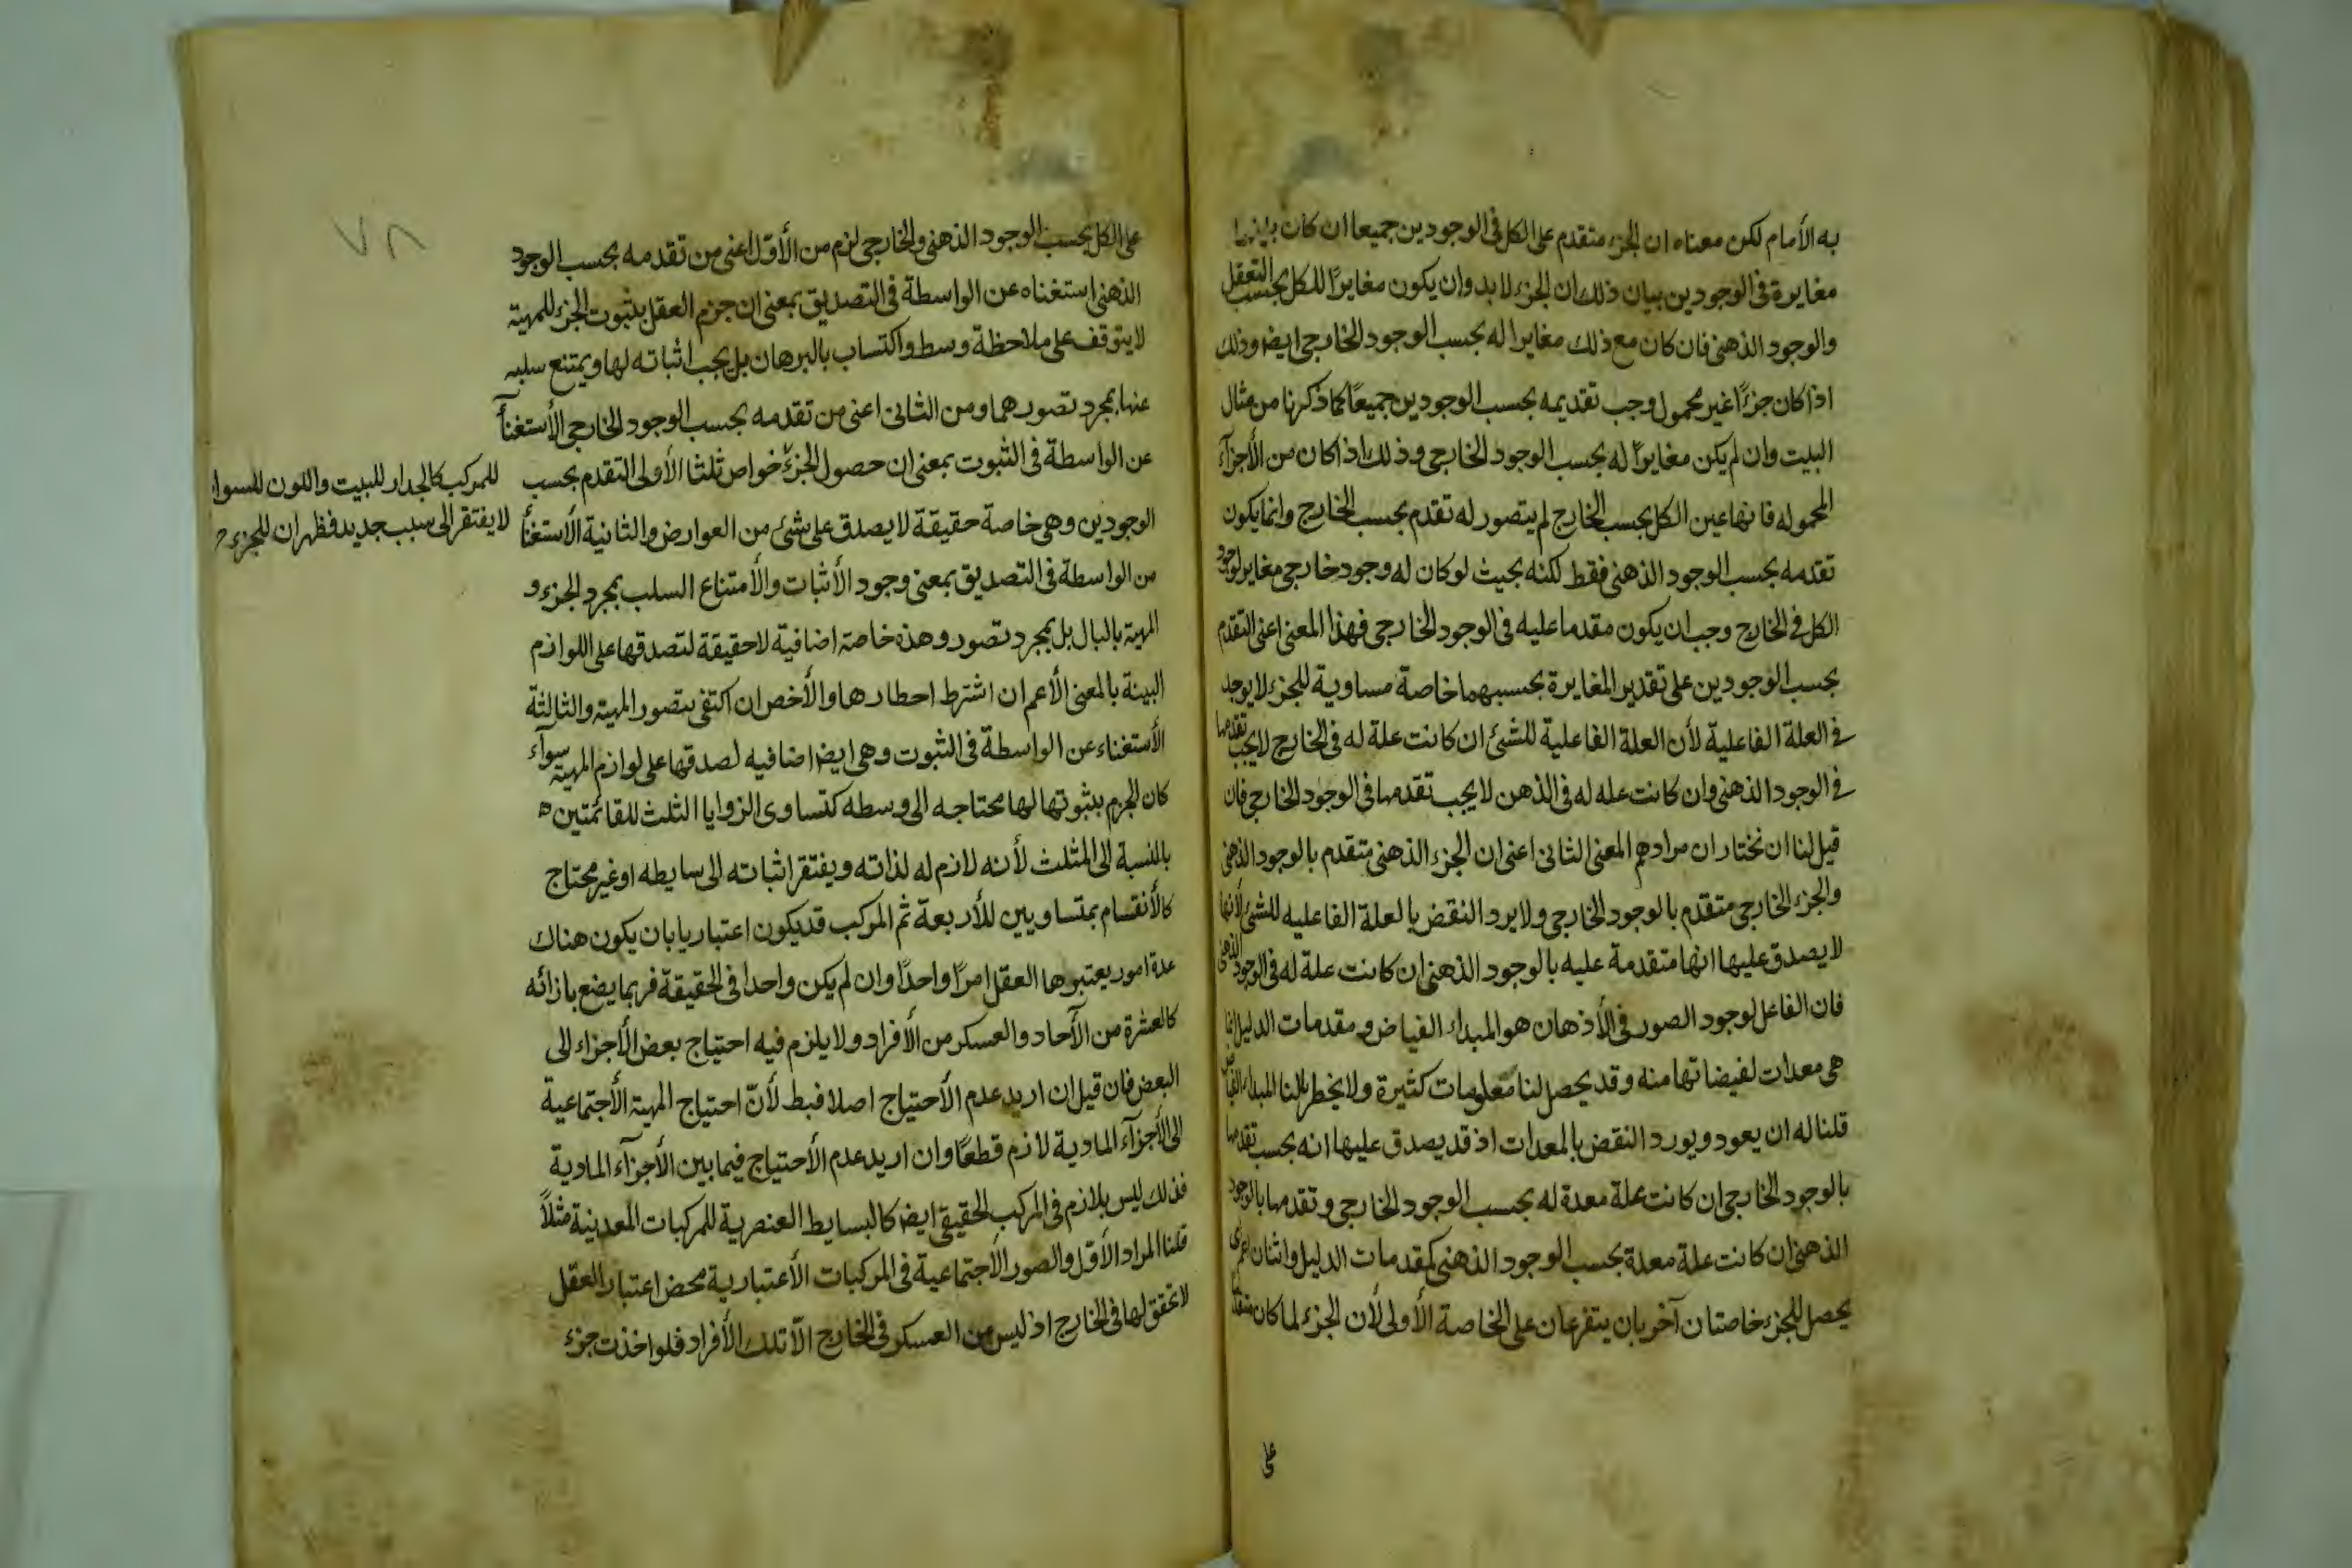 به الأمام لكن معناه ان الجزء متقدم على الكل فى الوجودين جميعا ان كان
مغايرة فى الوجودين بيان ذلك ان الجزء لابد وان يكون مغايرًا للكل بحسب التعقل
والوجود الذهنى فان كان مع ذلك مغايرا له بحسب الوجود الخارجى ايضا وذلك
اذا كان جزءًا غير محمول وجب تقديمه بحسب الوجودين جميعًا كما ذكرنا من مثال
البيت وان لم يكن مغايرًا له بحسب الوجود الخارجى وذلك اذا كان من الأجزآء
المحموله فانها عين الكل بحسب الخارج لم يتصور له تقدم بحسب الخارج وانما يكون
تقدمه بحسب الوجود الذهنى فقط لكنه بحيث لو كان له وجود خارجى مغاير لوجود
الكل فى الخارج وجب ان يكون مقدما عليه فى الوجود الخارجى فهذا المعنى اعنى التقدم
بحسب الوجودين على تقدير المغايرة بحسبهما خاصة مساوية للجزء لا يوجد
فى العلة الفاعلية لأن العلة الفاعلية للشئ ان كانت علة له فى الخارج لا يجب تقدمها
فى الوجود الذهنى وان كانت عله له فى الذهن لا يجب تقدمها فى الوجود الخارجى فان
قيل لنا ان نختار ان مرادهم المعنى الثانى اعنى ان الجزء الذهنى متقدم بالوجود الذهنى
والجزء الخارجى متقدم بالوجود الخارجى ولا يرد النقض بالعلة الفاعليه للشئ لأنها
لا يصدق عليها انها متقدمة عليه بالوجود الذهنى ان كانت علة له فى الوجود الذهنى
فان الفاعل لوجود الصور فى الأذهان هو المبداء الفياض ومقدمات الدليل انما
هى معدات لفيضانها منه وقد يحصل لنا معلومات كثيرة ولا يخطر ببالنا المبداء الفياض
قلنا له ان يعود ويورد النقض بالمعدات اذ قد يصدق عليها انه بحسب تقدمها
بالوجود الخارجى ان كانت علة معدة له بحسب الوجود الخارجى وتقدمها بالوجود
الذهنى ان كانت علة معدة بحسب الوجود الذهنى كمقدمات الدليل واثنان
يحصل للجزء خاصتان آخريان يتفرعان على الخاصة الأولى لأن الجزء لما كان متقدما
على
٧٨
على الكل بحسب الوجود الذهنى والخارجى لزم من الأوّل اعنى من تقدمه بحسب الوجود
الذهنى استغناه عن الواسطة فى التصديق بمعنى ان جزم العقل بثبوت الجزء للمهية
لا يتوقف على ملاحظة وسط واكتساب بالبرهان بل يجب اثباته لها ويمتنع سلبه
عنها بمجرد تصورهما ومن الثانى اعنى من تقدمه بحسب الوجود الخارجى الأستغنآ
عن الواسطة فى الثبوت بمعنى ان حصول الجزء خواص ثلثا الأولى التقدم بحسب
للمركب كالجدار للبيت واللون للسواد
لا يفتقر الى سبب جديد فظهر ان للجزء
الوجودين وهى خاصة حقيقة لا يصدق على شئ من العوارض والثانية الأستغنآ
من الواسطة فى التصديق بمعنى وجود الأثبات والأمتناع السلب بمجرد الجزء و
المهية بالبال بل بمجرد تصور وهذه خاصة اضافية لا حقيقة لتصدقها على اللوازم
البينة بالمعنى الأعم ان اشترط احطارها والأخص ان اكتفى بتصور المهية والثالثة
الأستغناء عن الواسطة فى الثبوت وهى ايضا اضافيه لصدقها على لوازم المهية سوآء
كان الجزم بثبوتها لها محتاجه الى وسطه كتساوى الزوايا الثلث للقائمتين
بالنسبة الى المثلث لأنه لازم له لذاته ويفتقر اثباته الى سايطه او غير محتاج
كالأنقسام بمتساويين للأربعة ثم المركب قد يكون اعتباريا بان يكون هناك
عدة امور يعتبرها العقل امرًا واحدًا وان لم يكن واحدا فى الحقيقة فربما يضع بازائه
كالعشرة من الآحاد والعسكر من الأفراد ولا يلزم فيه احتياج بعض الأجزاء الى
البعض فان قيل ان اريد عدم الأحتياج اصلا فبط لأنّ احتياج المهية الأجتماعية
الى الأجزآء المادية لازم قطعًا وان اريد عدم الأحتياج فيما بين الأجزآء المادية
فذلك ليس بلازم فى المركب الحقيقى ايضا كالبسايط العنصرية للمركبات المعدنية مثلاً
قلنا المراد الأوّل والصور الأجتماعية فى المركبات الأعتبارية محض اعتبار العقل
لا تحقق لها فى الخارج اذ ليس من العسكر فى الخارج الّا تلك الأفراد فلو اخذت جزء